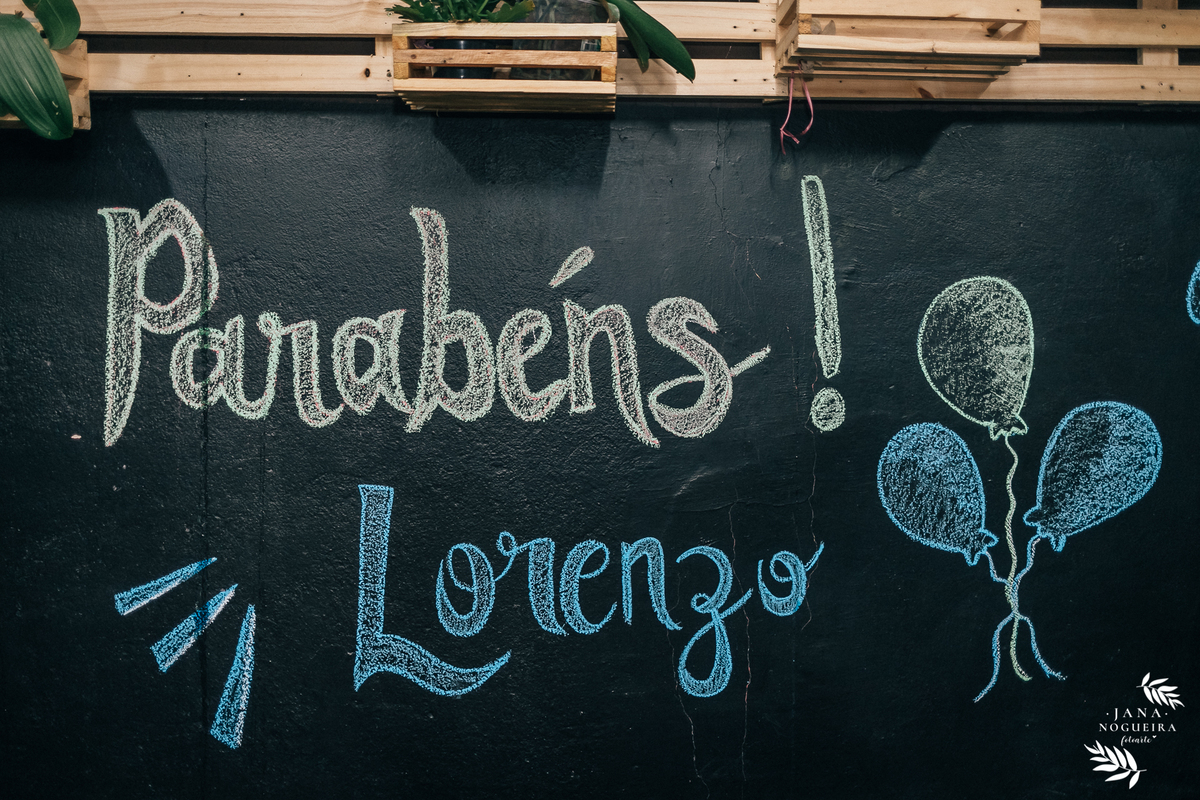 Parabéns!
Lorenzo
·JANA·
NOGUEIRA
fotoarte